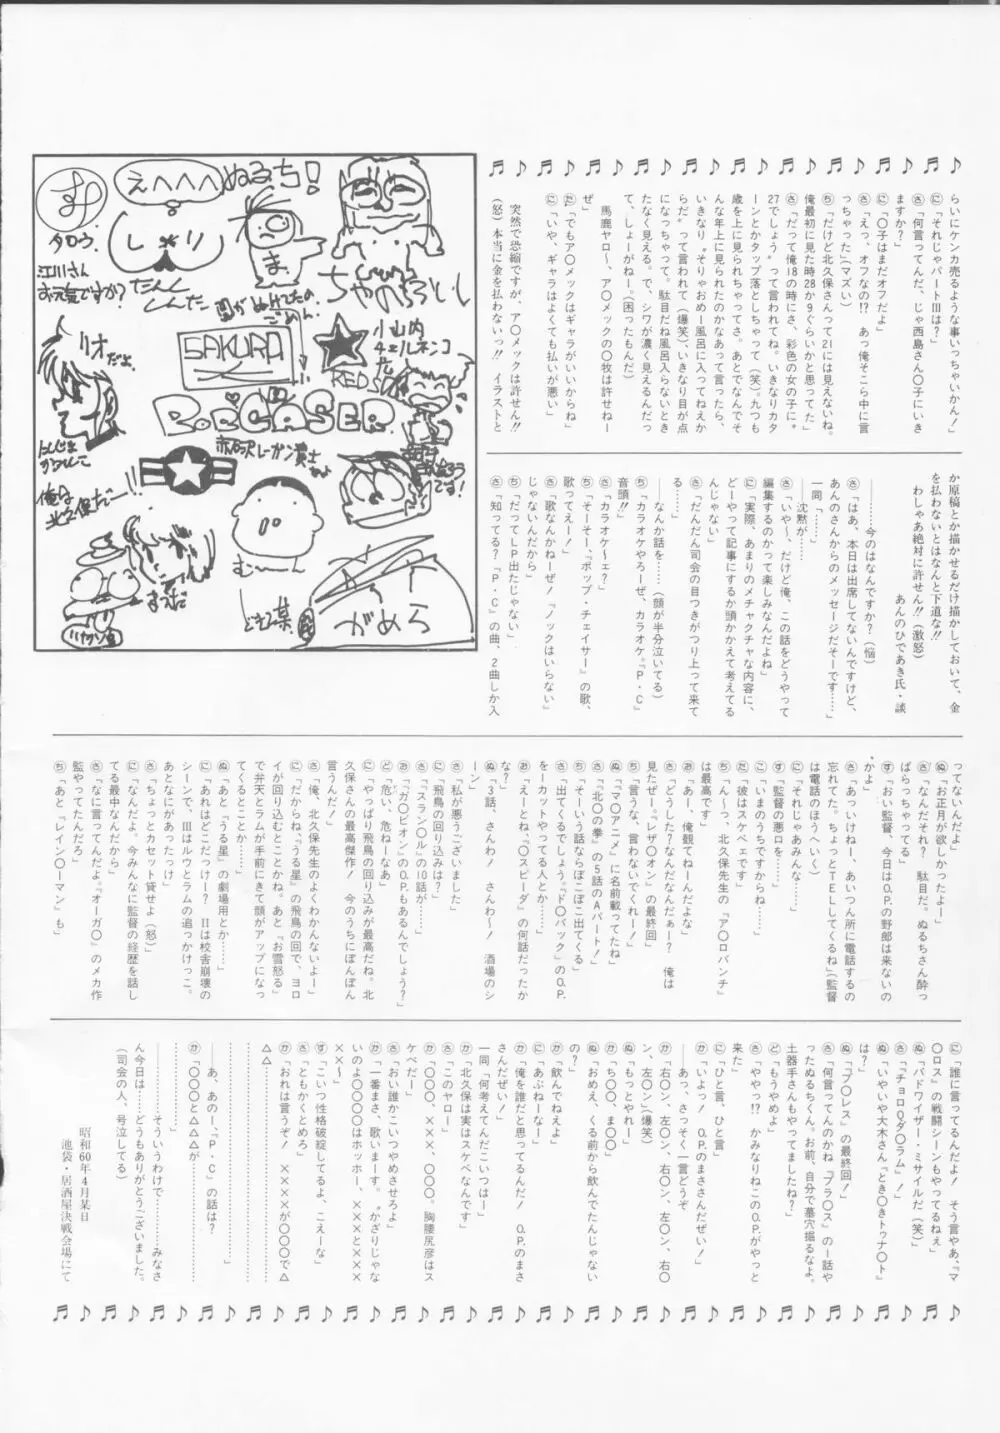 らいにケンカ売るような事いっちゃいかん！」
㋥「それじゃパートⅢは？」
㋚「何言ってんだ、じゃ西島さん〇子にいき
ますか？」
㋥「〇子はまだオフだよ」
㋚「えっ、オフなの!? あっ俺そこら中に言
っちゃった」（マズい）
㋠「だけど北久保さんって21には見えないね。
俺最初に見た時28か9くらいかと思ってた」
㋚「だって俺18の時にさ、彩色の女の子に。
27でしょう〟って言われてね。いきなりカタ
ーンとかタップ落としちゃって（笑）。九つも
歳を上に見られちゃってさ。あとでなんでそ
んな年上に見られたのかなあって言ったら、
いきなり〝そりゃおめー風呂に入ってねえか
らだ〟って言われて（爆笑）、いきなり目が点
になっちゃって。駄目だね風呂入らないとき
たなく見える。で、シワが濃く見えるんだっ
て、しょーがねー。（困ったもんだ）
馬鹿ヤロ～、ア〇メックの〇牧は許せねー
ぜ」
㋟「でもア〇メックはギャラがいいからね」
㋥「いや、ギャラはよくても払いが悪い」
突然で恐縮ですが、ア〇メックは許せん!!
（怒）本当に金を払わないっ!! イラストと
か原稿とか描かせるだけ描かしておいて、金
を払わないとはなんと下道な!!
わしゃあ絶対に許せん!!（激怒）
あんのひであき氏・談
――今のはなんですか？（悩）
㋚「はあ、本日は出席してないんですけど、
あんのさんからのメッセージだそーです……」
一同「……」
――沈黙が……
㋚「いや～、だけど俺、この話をどうやって
編集するのかって楽しみなんだよね」
㋥「実際、あまりのメチャクチャな内容に、
どーやって記事にするか頭かかえて考えてる
んじゃない」
㋚「だんだん司会の目つきがつり上って来て
る……」
――なんか話を……（顔が半分泣いてる）
㋠「カラオケやろーぜ、カラオケ。『P・C』
音頭!!」
㋚「カラオケ～ェ？」
㋠「そーそー、『ポップ・チェイサー』の歌、
歌ってえー！」
㋚「歌なんかねーぜ！『ノックはいらない』
じゃないんだから」
㋠「だってLP出たじゃない」
㋚「知ってる？『P・C』の曲、2曲しか入
ってないんだよ」
㋦「お正月が欲しかったよー」
㋚「なんだそれ？ 駄目だ。ぬるちさん酔っ
ぱらっちゃってる」
㋜「おい監督、今日はO.P.の野郎は来ないの
かよ」
㋚「あっいけねー、あいつん所に電話するの
忘れてた。ちょっとTELしてくるね」（監督
は電話のほうへいく）
㋥「それじゃあみんな……」
㋜「監督の悪口を……」
㋙「いまのうちですからね……」
㋟「彼はスケベェです」
㋠「ん～っ、北久保先生の『ア〇ロバンチ』
は最高です」
㋔「あー、俺観てねーんだよな」
㋚「どうした？なんだなんだぁー？ 俺は
見たぜー。『レザ〇オン』の最終回」
㋠「言うな、言わないでくれー！」
㋦「『マ〇アニメ』に名前載ってたね」
㋚「『北〇の拳』の5話のAパート！」
㋞「そーいう話ならぼこぼこ出てくる」
㋚「出てくるでしょう。『ド〇バック』のO.P.
をーカットやってる人とか……」
㋔「えーとね、『〇スピーダ』の何話だったか
な？」
㋦「3話、さんわ！ さんわ～！ 酒場のシ
ーン」
㋚「私が悪うございました」
㋚「『スラン〇ル』の10話が……」
㋥「飛鳥の回り込みは？」
㋣「危い、危ねーなあ」
㋔「『ガ〇ビオン』のO.P.もあるんでしょう？」
㋥「やっぱり飛鳥の回り込みが最高だね。北
久保さんの最高傑作！ 今のうちにぽんぽん
言うんだ」
㋚「俺、北久保先生のよくわかんないよー」
㋥「だからね、『うる星』の飛鳥の回で、ヨロ
イが回り込むとことかね。あと『お雪怒る』
で弁天とラムが手前にきて顔がアップになっ
てくるとことか……」
㋦「あと『うる星』の劇場用とか……」
㋥「あれはどこだっけー？ Ⅱは校舎崩壊の
シーンで、Ⅲはルウとラムの追っかけっこ。
あとなにがあったっけ」
㋚「ちょっとカセット貸せよ（怒）」
㋥「なんだよ。今みんなに監督の経歴を話し
てる最中なんだから」
㋚「なに言ってんだよ。『オーガ〇』のメカ作
監やってたんだろ」
㋠「あと『レイン〇ーマン』も」
㋥「誰に言ってるんだよ！ そう言やあ、『マ
〇ロス』の戦闘シーンもやってるねぇ」
㋦「バドワイザー・ミサイルだ（笑）」
㋚「『チョロQダ〇ラム』！」
㋦「いやいや大木さん『とき〇きトゥナ〇ト』
は？」
㋦「『プ〇レス』の最終回！」
㋚「何言ってんのかね『プラ〇ス』の一話や
ったぬるちくん。お前、自分で墓穴掘るなよ。
土器手さんもやってましたね？」
㋣「もうやめよ」
㋚「ややっ!? かみなりねこのO.P.がやっと
来た」
㋥「ひと言、ひと言」
㋕「いよっ！ O.P.のまささんだぜい！」
――あっ、さっそく一言どうぞ
㋕「右〇ン、左〇ン、右〇ン、左〇ン、右〇
ン、左〇ン」（爆笑）
㋦「もっとやれー」
㋕「ち〇〇、ま〇〇」
㋦「おめえ、くる前から飲んでたんじゃない
の？」
㋕「飲んでねえよ」
㋥「あぶねーなー」
㋕「俺を誰だと思ってるんだ！ O.P.のまさ
さんだぜい！」
一同「何考えてんだこいつはー」
㋕「北久保は実はスケベなんです」
㋚「このヤロー」
㋕「〇〇〇、×××、〇〇〇。胸腰尻彦はス
ケベだー」
㋚「おい誰かこいつやめさせろよ」
㋕「一番まさ、歌いまーす。〝かざりじゃな
いのよ〇〇〇〇はホッホー、×××と×××
××～」
㋜「こいつ性格破綻してるよ、こえーな」
㋚「ともかくとめろ」
㋕「おれは言うぞ！ ××××が〇〇〇で△
△△………………………………
………………………………」
――あ、あのー、『P・C』の話は？
㋕「〇〇〇と△△△が…………
……」
――…………そういうわけで……みなさ
ん今日は……どうもありがとうございました。
（司会の人、号泣してる）
昭和60年4月某日
池袋・居酒屋決戦会場にて
えへへへ
ぬるち！
タロウ.
江川さん
お元気ですか？
しり
だんし
しんだ
ま
間がぬけてたの
ごめん.
ちゃのへらい
SAKURA
小山内
チェルネンコ
RED S
リオだよ.
P.CASER
赤沢レーガン賞士
だよ
です！
俺は
北久保だー!!
む～ん
まつだ
がめら